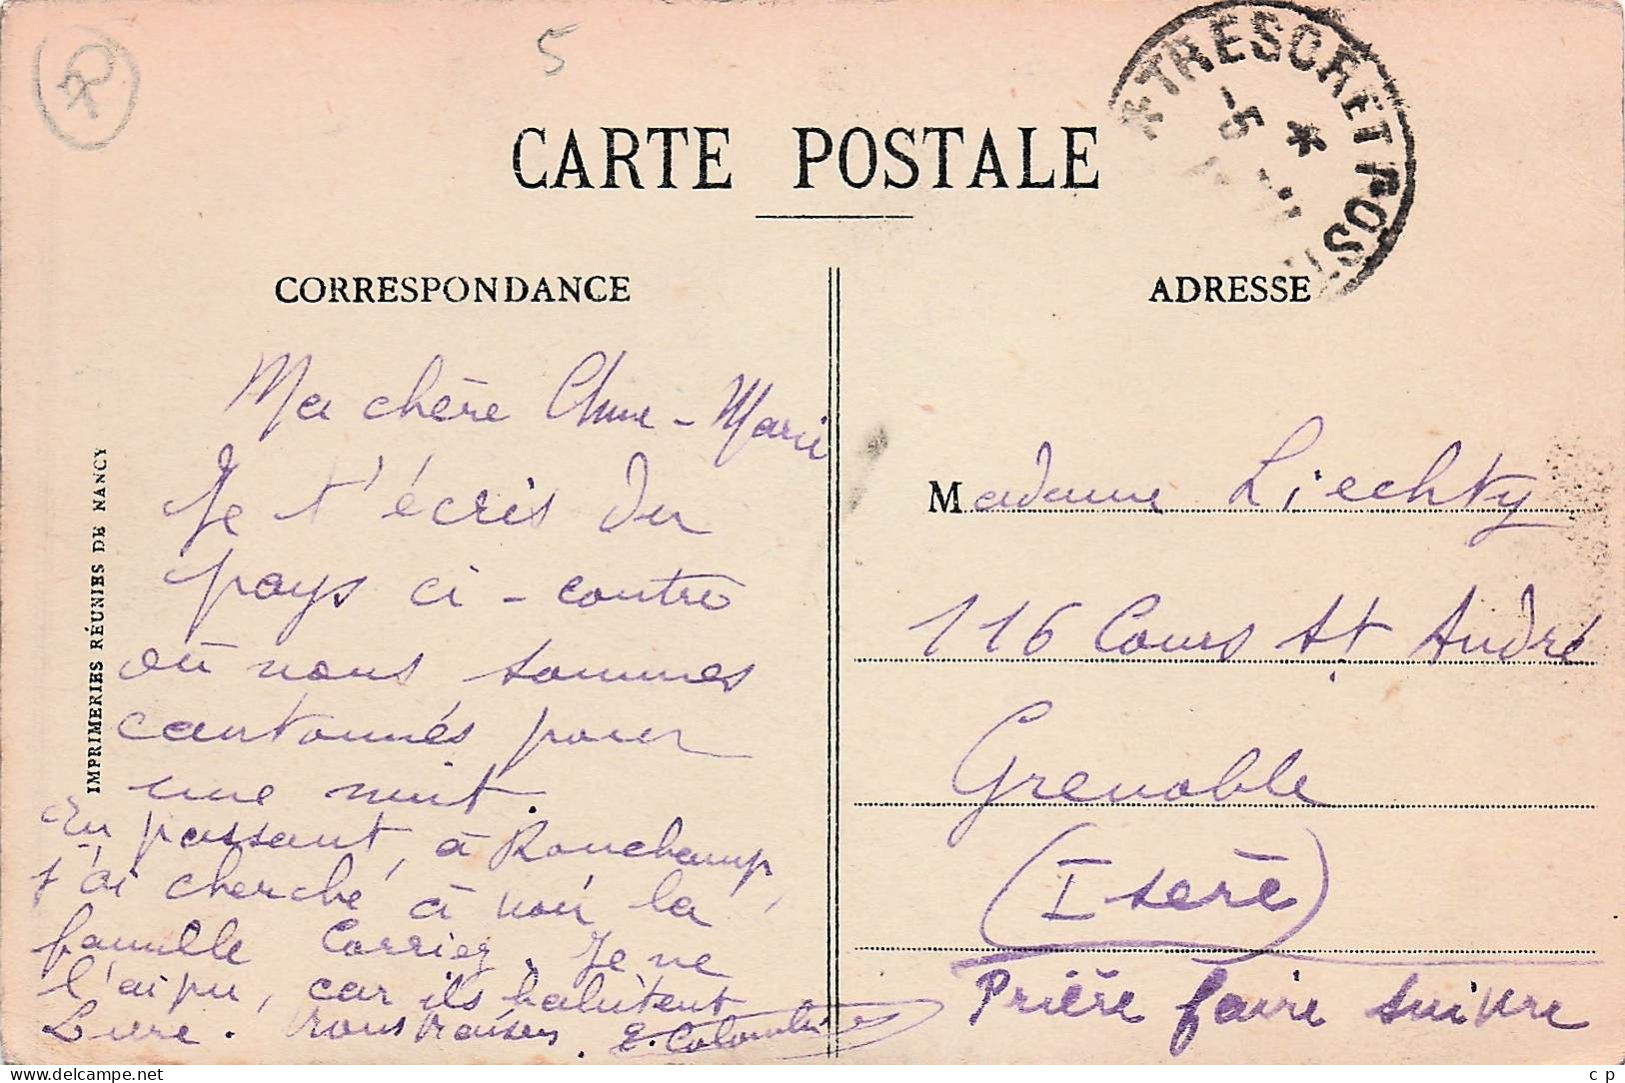 5
CARTE POSTALE
TRESOR ET POST
-5
CORRESPONDANCE
ADRESSE
Ma chère Anne-Marie
Je t'écris du
pays ci-contre
où nous sommes
cantonnés pour
une nuit.
En passant, à Ronchamp,
j'ai cherché à voir la
famille Carrier. Je ne
l'ai pu, car ils habitent
Lure.
Madame Liechty
116 Cours St André
Grenoble
(Isère)
Prière faire suivre
IMPRIMERIES RÉUNIES DE NANCY
delcampe.net
c p